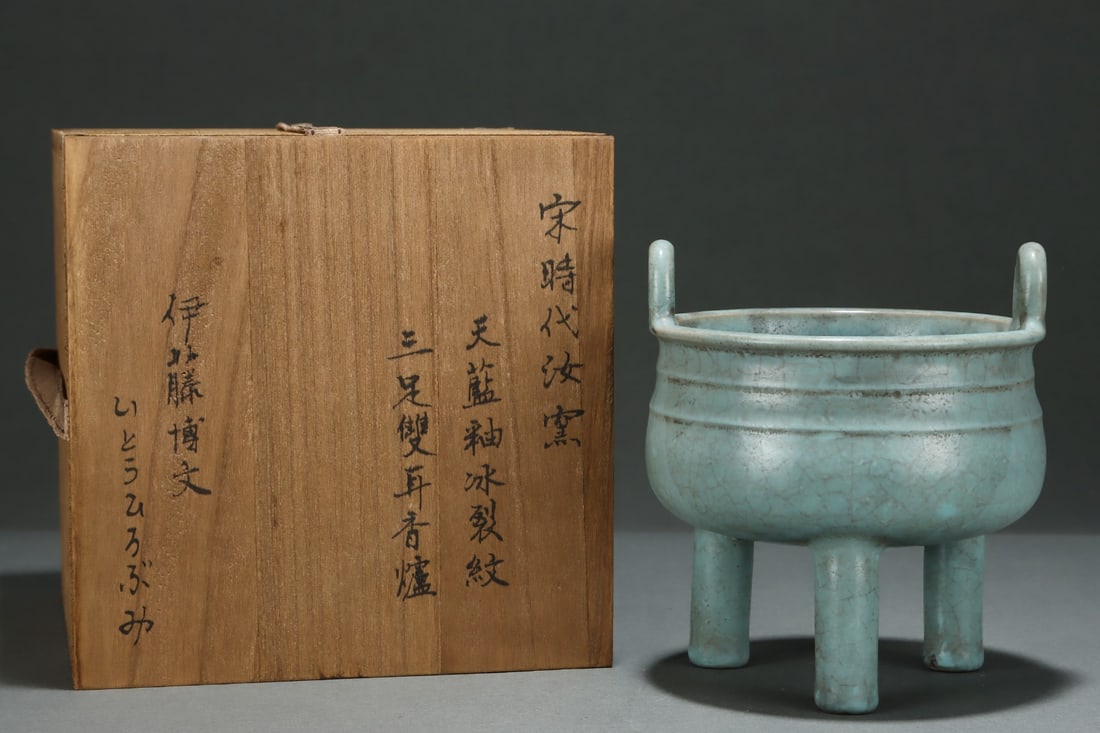 宋時代汝窯
天藍釉冰裂紋
三足雙耳香爐
伊藤博文
いとうひろぶみ